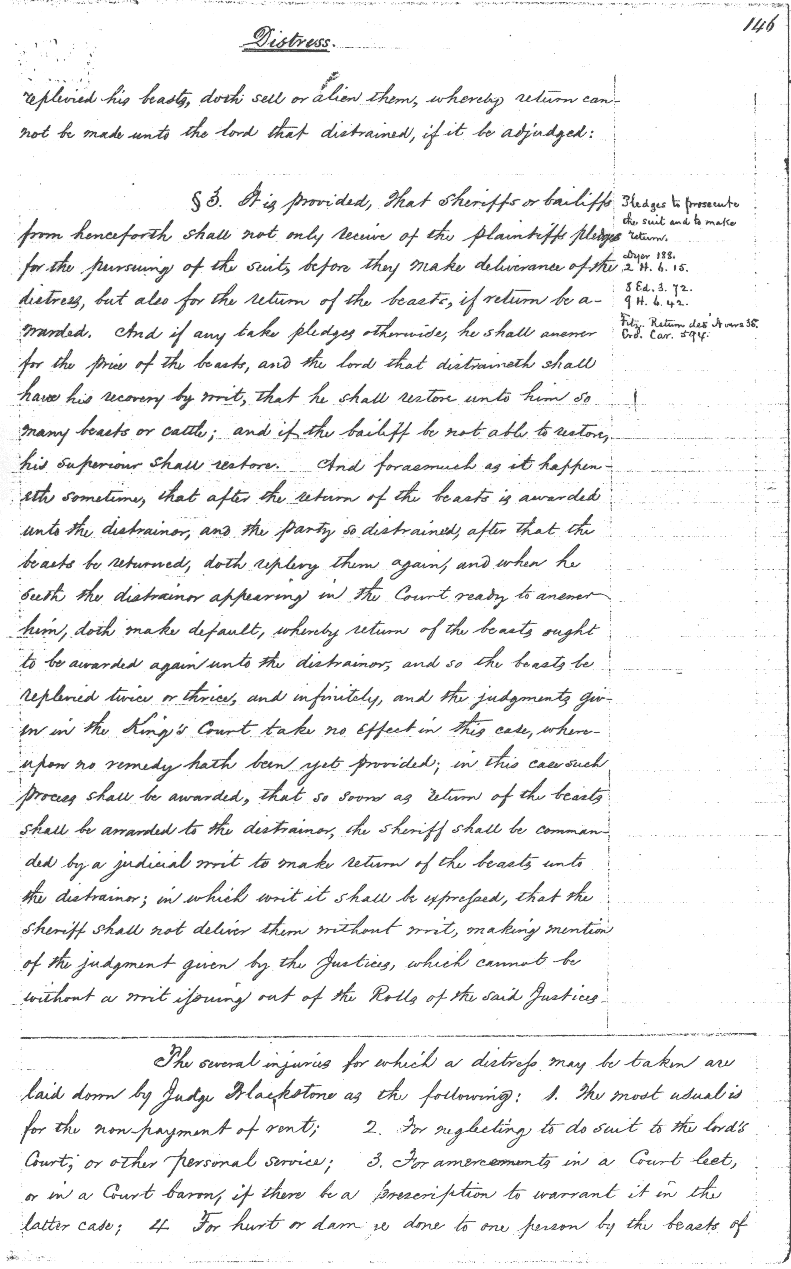 146
Distress.
replevied his beasts, doth sell or alien them, whereby return can-
not be made unto the lord that distrained, if it be adjudged:
§ 3. It is provided, That sheriffs or bailiffs
from henceforth shall not only receive of the plaintiffs pledges
for the pursuing of the suit, before they make deliverance of the
distress, but also for the return of the beasts, if return be a-
warded. And if any take pledges otherwise, he shall answer
for the price of the beasts, and the lord that distraineth shall
have his recovery by writ, that he shall restore unto him so
many beasts or cattle; and if the bailiff be not able to restore,
his superiour shall restore. And forasmuch as it happen-
eth sometime, that after the return of the beasts is awarded
unto the distrainor, and the party so distrained, after that the
beasts be returned, doth replevy them again, and when he
seeth the distrainor appearing in the Court ready to answer
him, doth make default, whereby return of the beasts ought
to be awarded again unto the distrainor, and so the beasts be
replevied twice or thrice, and infinitely, and the judgments giv-
en in the King's Court take no effect in this case, where-
upon no remedy hath been yet provided; in this case such
process shall be awarded, that so soon as return of the beasts
shall be awarded to the distrainor, the sheriff shall be comman-
ded by a judicial writ to make return of the beasts unto
the distrainor; in which writ it shall be expressed, that the
sheriff shall not deliver them without writ, making mention
of the judgment given by the Justices, which cannot be
without a writ issuing out of the Rolls of the said Justices.
Pledges to prosecute
the suit and to make
return.
Dyer 188.
2 H. 6. 15.
8 Ed. 3. 72.
9 H. 6. 42.
Fitz. Return des Avers 36.
Cro. Car. 594.
The several injuries for which a distress may be taken are
laid down by Judge Blackstone as the following: 1. The most usual is
for the non-payment of rent; 2. For neglecting to do suit to the lord's
Court, or other personal service; 3. For amercements in a Court leet,
or in a Court baron, if there be a prescription to warrant it in the
latter case; 4 For hurt or done to one person by the beasts of